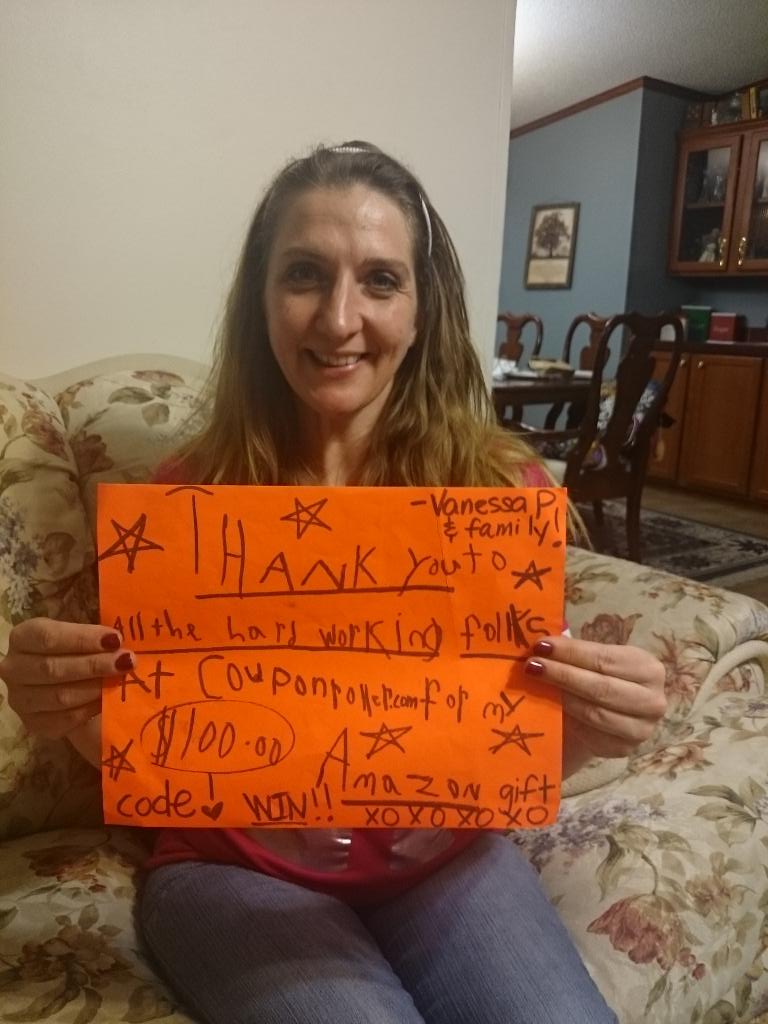 -Vanessa P.
& family!
THANK you to
All the hard working folks
At Couponroller.com for my
$100.00 Amazon gift
code WIN!! XOXOXOXO